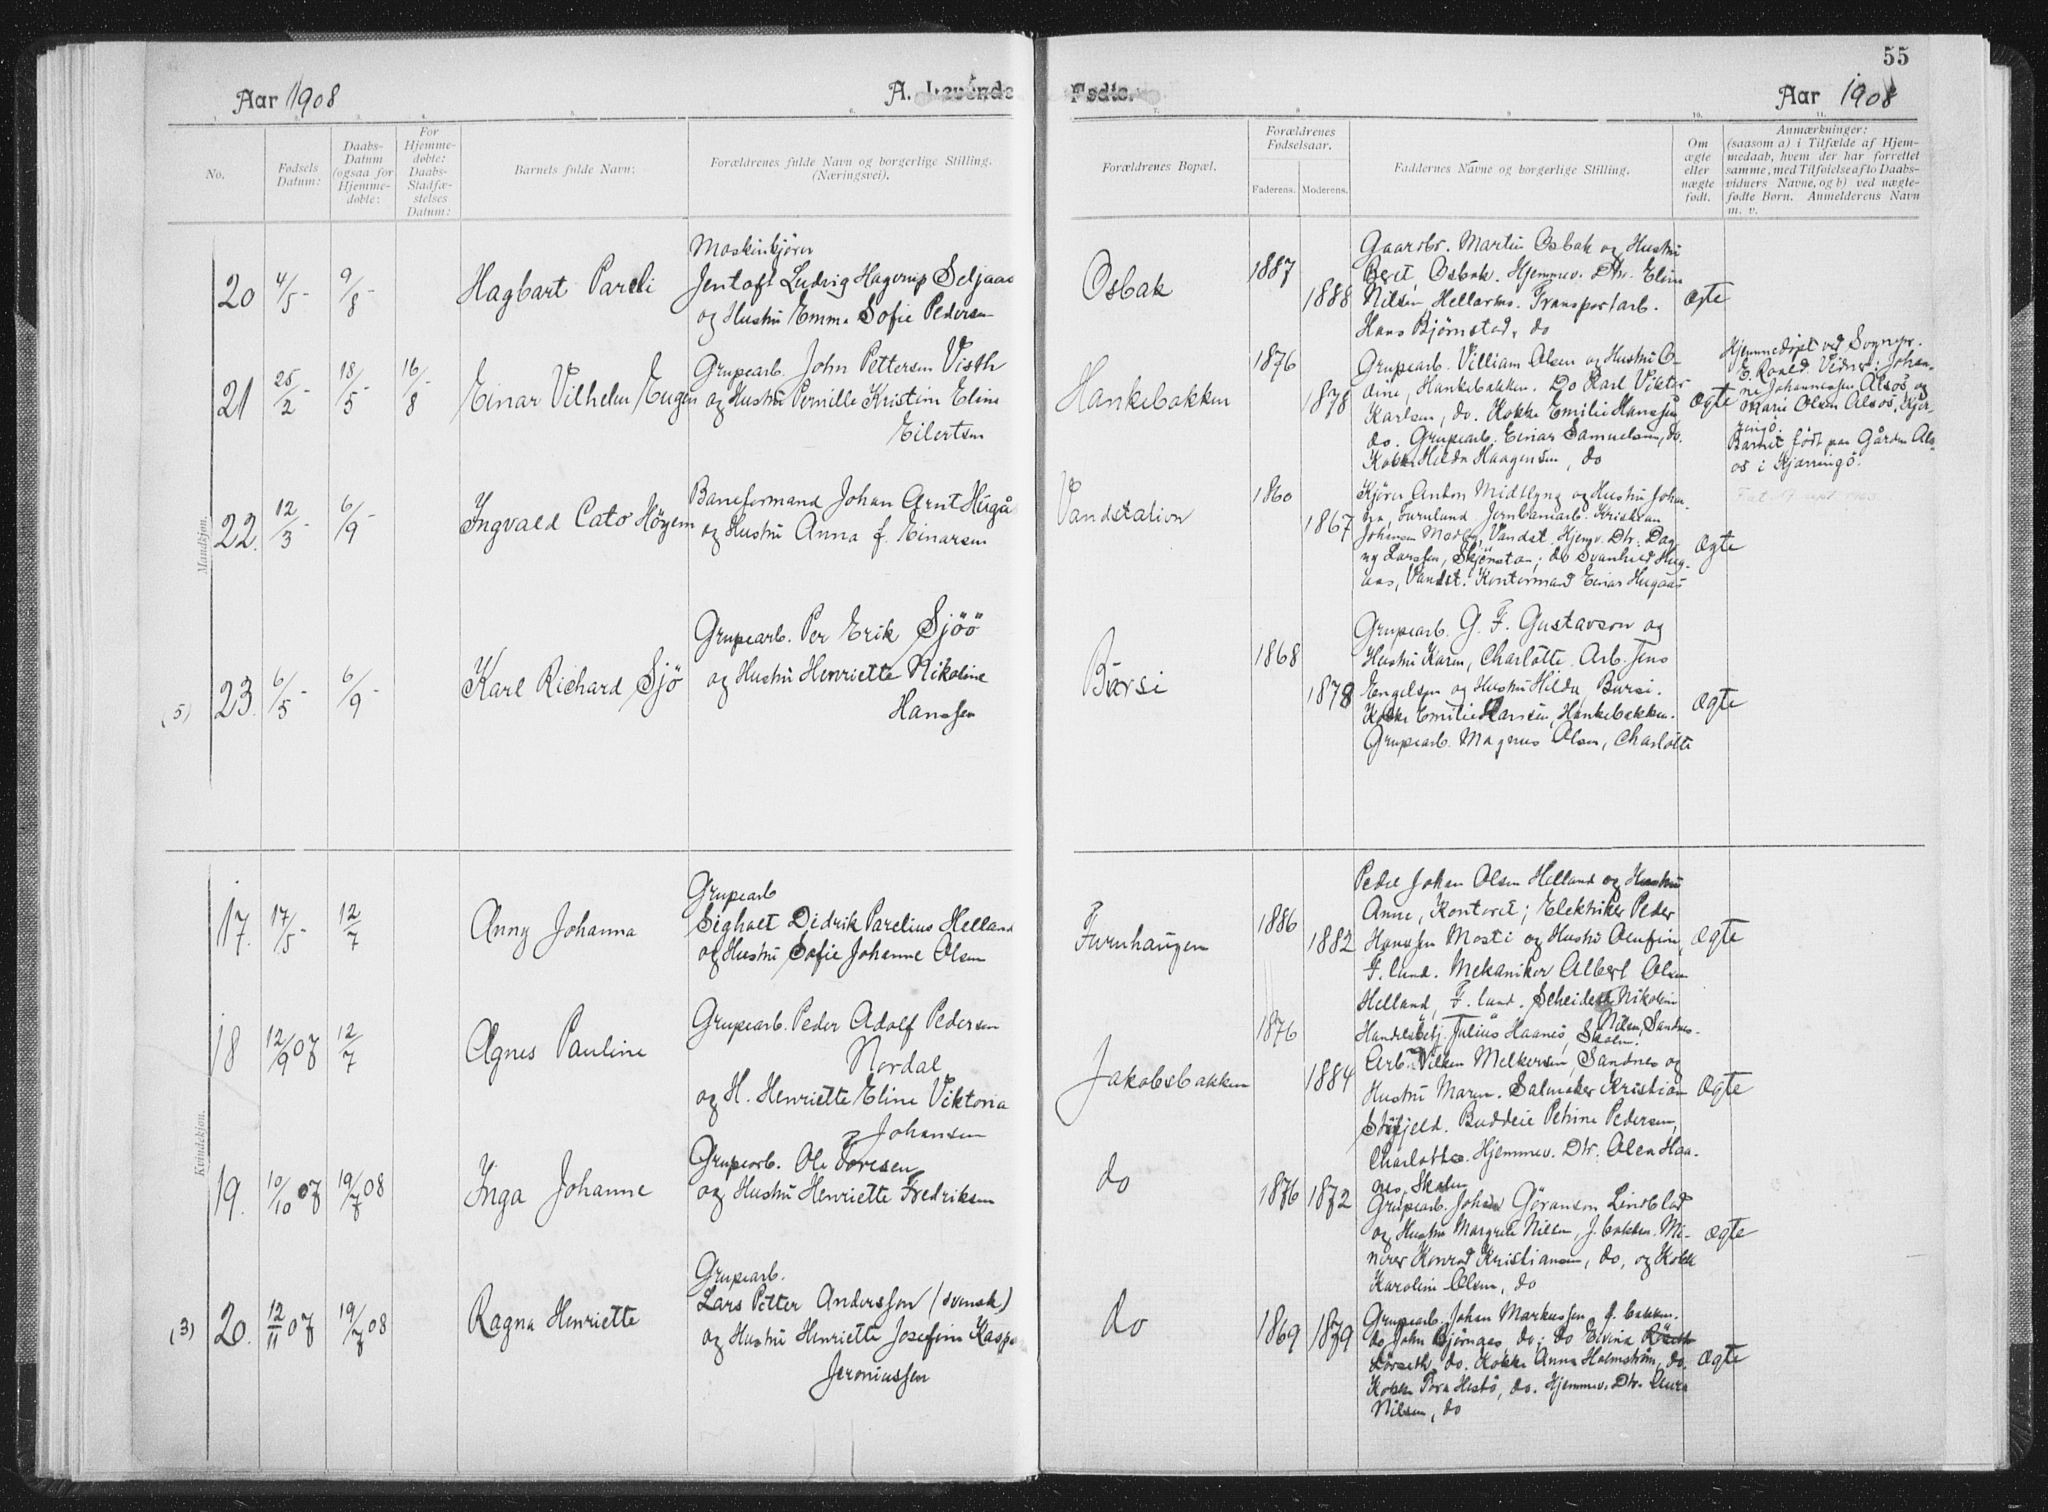 55
Aar 1908
A. Levende
Fødte.
Aar 1908
1. 2. 3. 4. 5. 6. 7. 8. 9. 10. 11.
No.
Fødsels
Datum:
Daabs-
Datum
(ogsaa for
Hjemme-
døbte:
For
Hjemme-
døbte:
Daabs-
Stadfæ-
stelses
Datum:
Barnets fulde Navn:
Forældrenes fulde Navn og borgerlige Stilling.
(Næringsvei).
Forældrenes Bopæl.
Forældrenes
Fødselsaar.
Faderens. Moderens.
Faddernes Navne og borgerlige Stilling.
Om
ægte
eller
nægte
født.
Anmærkninger:
(saasom a) i Tilfælde af Hjem-
medaab, hvem der har forrettet
samme, med Tilføielse af to Daabs-
vidners Navne, og b) ved nægte-
fødte Børn. Anmelderens Navn
m. v.
Mandkjøn.
20 4/5- 9/8-
Hagbart Pareli
Maskinkjører
Jentoft Ludvig Hagerup Seljaas
og Hustru Emma Sofie Pedersen
Osbak
1887
1888
Gaardbr. Martin Osbak og Hustru
Berit Osbak. Hjemmev. Dtr. Eline
Nilsen Hellarmo. Transportarb.
Hans Bjørnstad, do
Ægte
21 25/2- 18/5- 16/8-
Einar Vilhelm Eugen
Grupearb. John Pettersen Visth
og Hustru Pernille Kristine Eline
Eilertsen
Hankebakken
1876
1878
Grupearb. Villiam Olsen og Hustru O-
dine, Hankebakken. Do Karl Viktor
Karlsen, do. Kokke Emilie Hanssen
do. Grupearb. Einar Samuelsen, do.
Kokke Hilda Haagensen, do
Ægte
Hjemmedøpt ved Sognepr.
E. Roald. Vidner: Johan-
ne Johannessen Alsos og
Marie Olsen Alsos, Kjær-
ringö.
Barnet født paa Gården Als-
os i Kjærringö.
22. 12/3- 6/9-
Ingvald Cato Höyem
Baneformand Johan Arnt Hugås
og Hustru Anna f. Einarsen
Vandstation
1860
1867
Kjører Anton Midtlyng og Hustru Johan-
na, Furulund. Jernbanearb. Kristian
Johansen Moeby, Vandst. Hjemv. Dtr. Dag-
ny Larssen, Skjönstaa; do Svanhild Hug-
aas, Vandst. Kontormand Einar Hugaas
Ægte
(5) 23. 6/5- 6/9-
Karl Richard Sjö
Grupearb. Per Erik Sjöö
og Hustru Henriette Nikoline
Hanssen
Bursi
1868
1878
Grupearb. G. F. Gustavson og
Hustru Karen, Charlotte. Arb. Jens
Engelsen og Hustru Hilda, Bursi.
Kokke Emilie Hansen, Hankebakken.
Grupearb. Magnus Olsen, Charlotte
Ægte
Kvindekjøn.
17. 17/5- 12/7
Anny Johanna
Grupearb
Sighart Didrik Parelius Helland
og Hustru Sofie Johanne Olsen
Furuhaugen
1886
1882
Peder Johan Olsen Helland og Hustru
Anne, Kontoret; Elektriker Peder
Hanssen Mosti og Hustru Olufine,
F. lund. Mekaniker Albert Olsen
Helland, F. lund. Scheiderske Nikoline
Nilsen, Sandnes.
Ægte
18 12/9 07 12/7
Agnes Pauline
Grupearb. Peder Adolf Pedersen
Nordal
og H. Henriette Eline Viktoria
Johansen
Jakobsbakken
1876
1884
Handelsbetj. Julius Haanes, Skolen.
Arb. Vilken Melkersen, Sandnes og
Hustru Maren. Salmaker Kristian
Störfjeld. Buddeie Petrine Pedersen,
Charlotte. Hjemmev. Dtr. Olea Haa-
nes, Skolen
Ægte
19. 10/10 07 19/7 08
Inga Johanne
Grupearb. Ole Toresen
og Hustru Henriette Fredriksen
do
1876 1872
Grupearb. Johan Göranson Lindblad
og Hustru Margrete Nilsen, J. bakken. Mi-
nerer Konrad Kristiansen, do, og Kokk
Karoline Olsen, do
Ægte
(3) 20. 12/11 07 19/7 08
Ragna Henriette
Grupearb.
Lars Petter Andersson (svensk)
og Hustru Henriette Josefine Kaspa
Jeroniussen
do
1869 1879
Grupearb. Johan Markussen J. bakken.
do John Bjørnaas, do; do Elvina
Lörseth, do. Kokke Anna Holmström, do.
Kokke Tora Hestö, do. Hjemmev. Dtr. Aura
Nilsen, do
Ægte